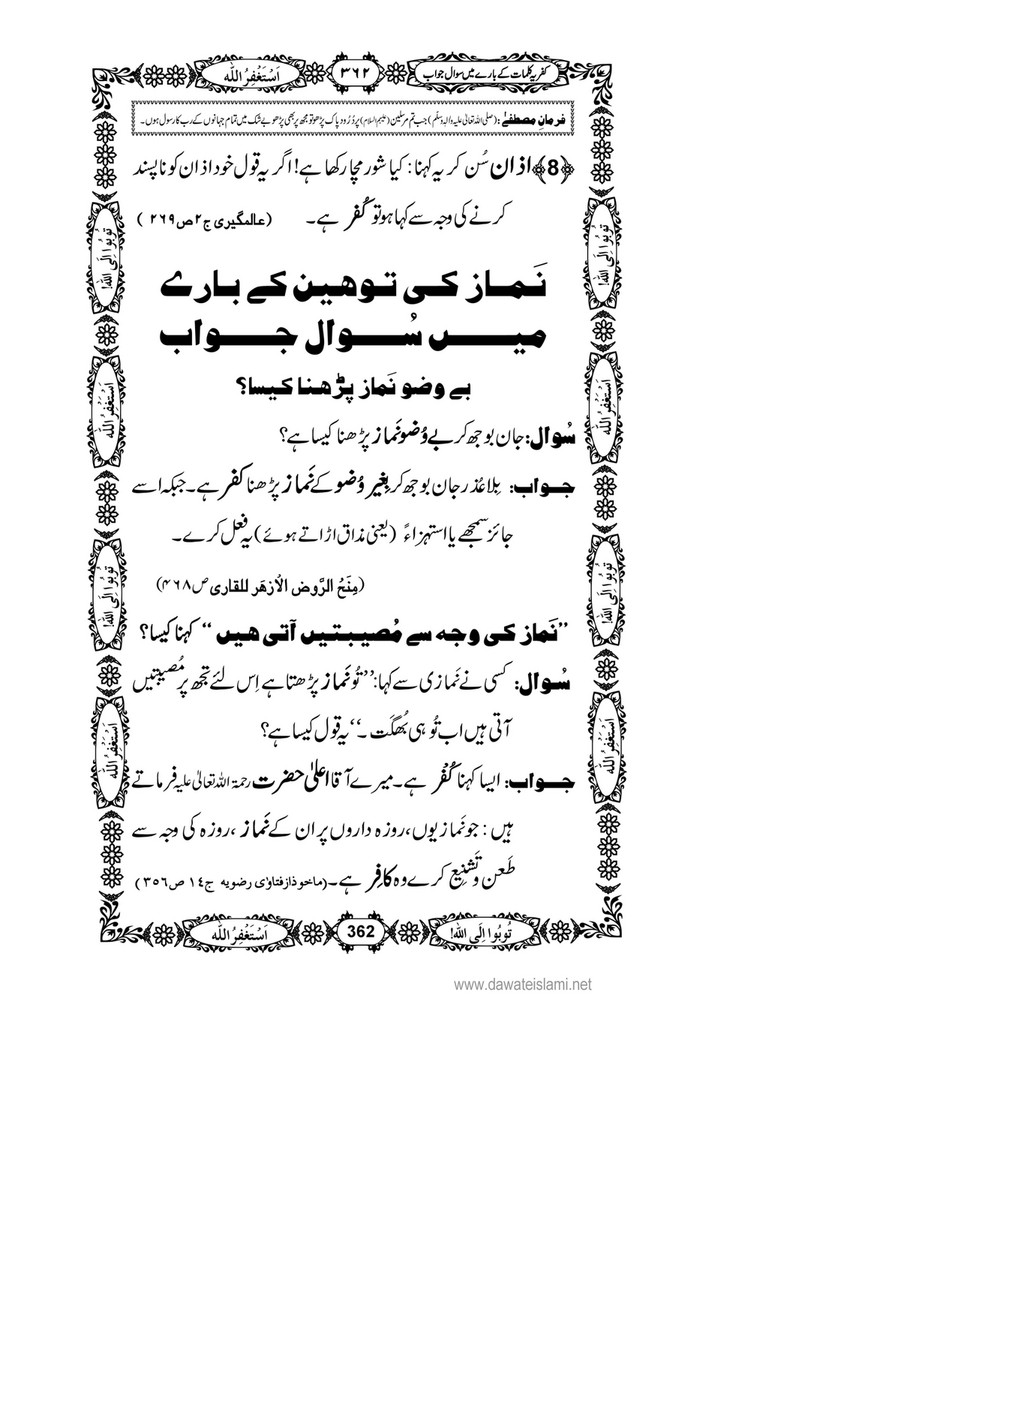 کفریہ کلمات کے بارے میں سوال جواب
۳۶۲
اَسْتَغْفِرُاللّٰه
فرمانِ مصطفےٰ : (صلی اللہ تعالیٰ علیہ والہ وسلم) جب تم مرسلین (علیہم السلام) پر دُرُود پاک پڑھو تو مجھ پر بھی پڑھو بے شک میں تمام جہانوں کے رب کا رسول ہوں۔
﴿8﴾ اذان سُن کر یہ کہنا: کیا شور مچا رکھا ہے! اگر یہ قول خود اذان کو ناپسند
کرنے کی وجہ سے کہا ہو تو کُفر ہے۔ (عالمگیری ج۲ ص ۲۶۹)
نَماز کی توھین کے بارے
میں سُوال جواب
بے وضو نَماز پڑھنا کیسا؟
سُوال: جان بوجھ کر بے وُضو نَماز پڑھنا کیسا ہے؟
جواب: بِلاعُذر جان بوجھ کر بِغیر وُضو کے نَماز پڑھنا کفر ہے۔ جبکہ اسے
جائز سمجھے یا استہزاءً (یعنی مذاق اڑاتے ہوئے) یہ فعل کرے۔
(مِنَحُ الرَّوض الْاَزهَر للقاری ص۴۶۸)
’’نَماز کی وجہ سے مُصیبتیں آتی ھیں‘‘ کہنا کیسا؟
سُوال: کسی نے نَمازی سے کہا: ’’تُو نَماز پڑھتا ہے اِس لئے تجھ پر مُصیبتیں
آتی ہیں اب تُو ہی بُھگت۔‘‘ یہ قول کیسا ہے؟
جواب: ایسا کہنا کُفْر ہے۔ میرے آقا اعلیٰ حضرت رحمۃ اللہ تعالیٰ علیہ فرماتے
ہیں: جو نَمازیوں، روزہ داروں پر ان کے نَماز، روزہ کی وجہ سے
طَعن و تَشنِیع کرے وہ کافِر ہے۔ (ماخوذ از فتاوٰی رضویہ ج١٤ ص ٣٥٦)
تُوبُوا اِلَی اللّٰه!
اَسْتَغْفِرُاللّٰه
تُوبُوا اِلَی اللّٰه!
اَسْتَغْفِرُاللّٰه
تُوبُوا اِلَی اللّٰه!
اَسْتَغْفِرُاللّٰه
تُوبُوا اِلَی اللّٰه!
اَسْتَغْفِرُاللّٰه
تُوبُوا اِلَی اللّٰه!
362
اَسْتَغْفِرُاللّٰه
www.dawateislami.net